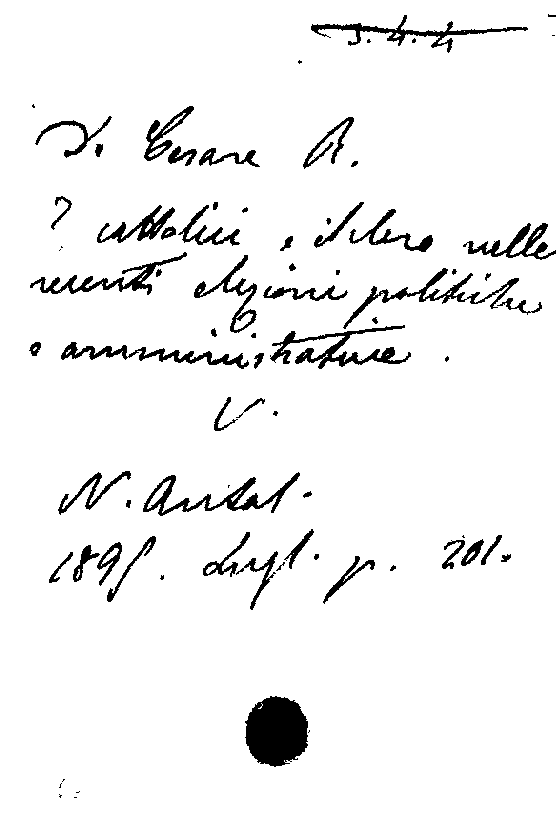 3.4.4
De Cesare R.
I cattolici e il clero nelle
recenti elezioni politiche
e amministrative.
V.
N. Antol.
1895. Lugl. p. 201.